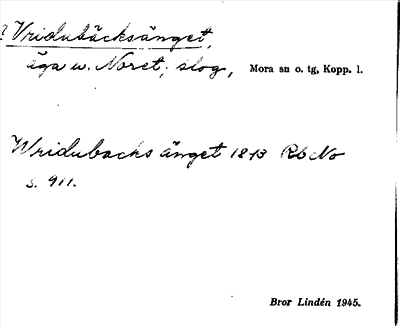 ? Vridubäcksänget,
äga u. Noret; slog, Mora sn o. tg, Kopp. l.
Wridubacks änget 1813 Rb No
s. 911.
Bror Lindén 1945.